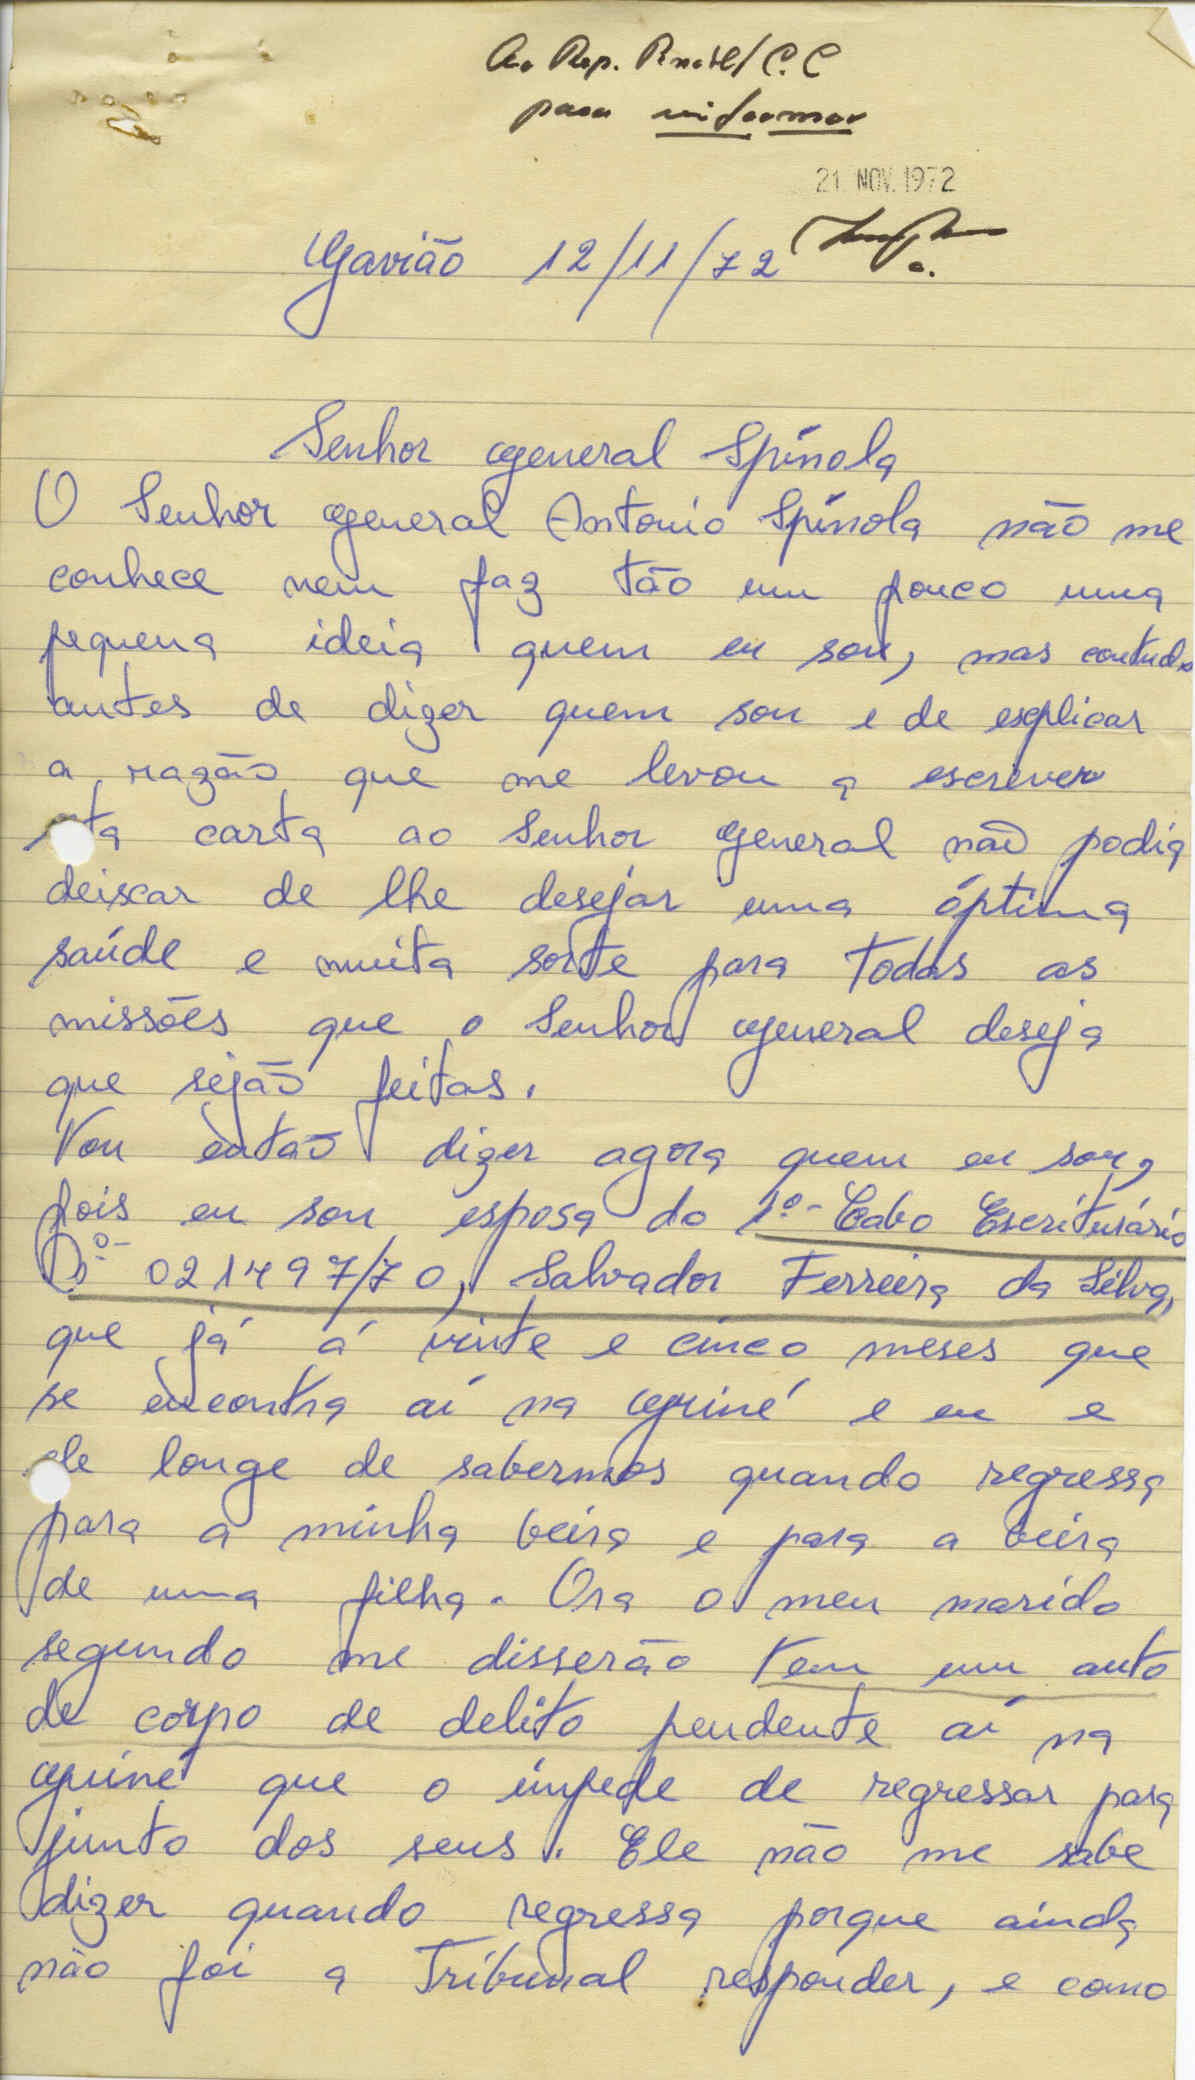 para informar
21 NOV. 1972
Gavião 12/11/72
Senhor general Spínola
O Senhor general Antonio Spínola não me
conhece nem faz tão um pouco uma
pequena ideia quem eu sou, mas contudo
antes de dizer quem sou e de explicar
a razão que me levou a escrever
esta carta ao Senhor general não podia
deixar de lhe desejar uma óptima
saúde e muita sorte para todas as
missões que o Senhor general deseja
que sejão feitas.
Vou então dizer agora quem eu sou,
pois eu sou esposa do 1º- Cabo Escriturário
Nº- 021497/70, Salvador Ferreira da Silva,
que já á vinte e cinco meses que
se encontra aí na Guiné e eu e
ele longe de sabermos quando regressa
para a minha beira e para a beira
de uma filha. Ora o meu marido
segundo me disserão tem um auto
de corpo de delito pendente aí na
Guiné que o impede de regressar para
junto dos seus. Ele não me sabe
dizer quando regressa porque ainda
não foi a Tribunal responder, e como